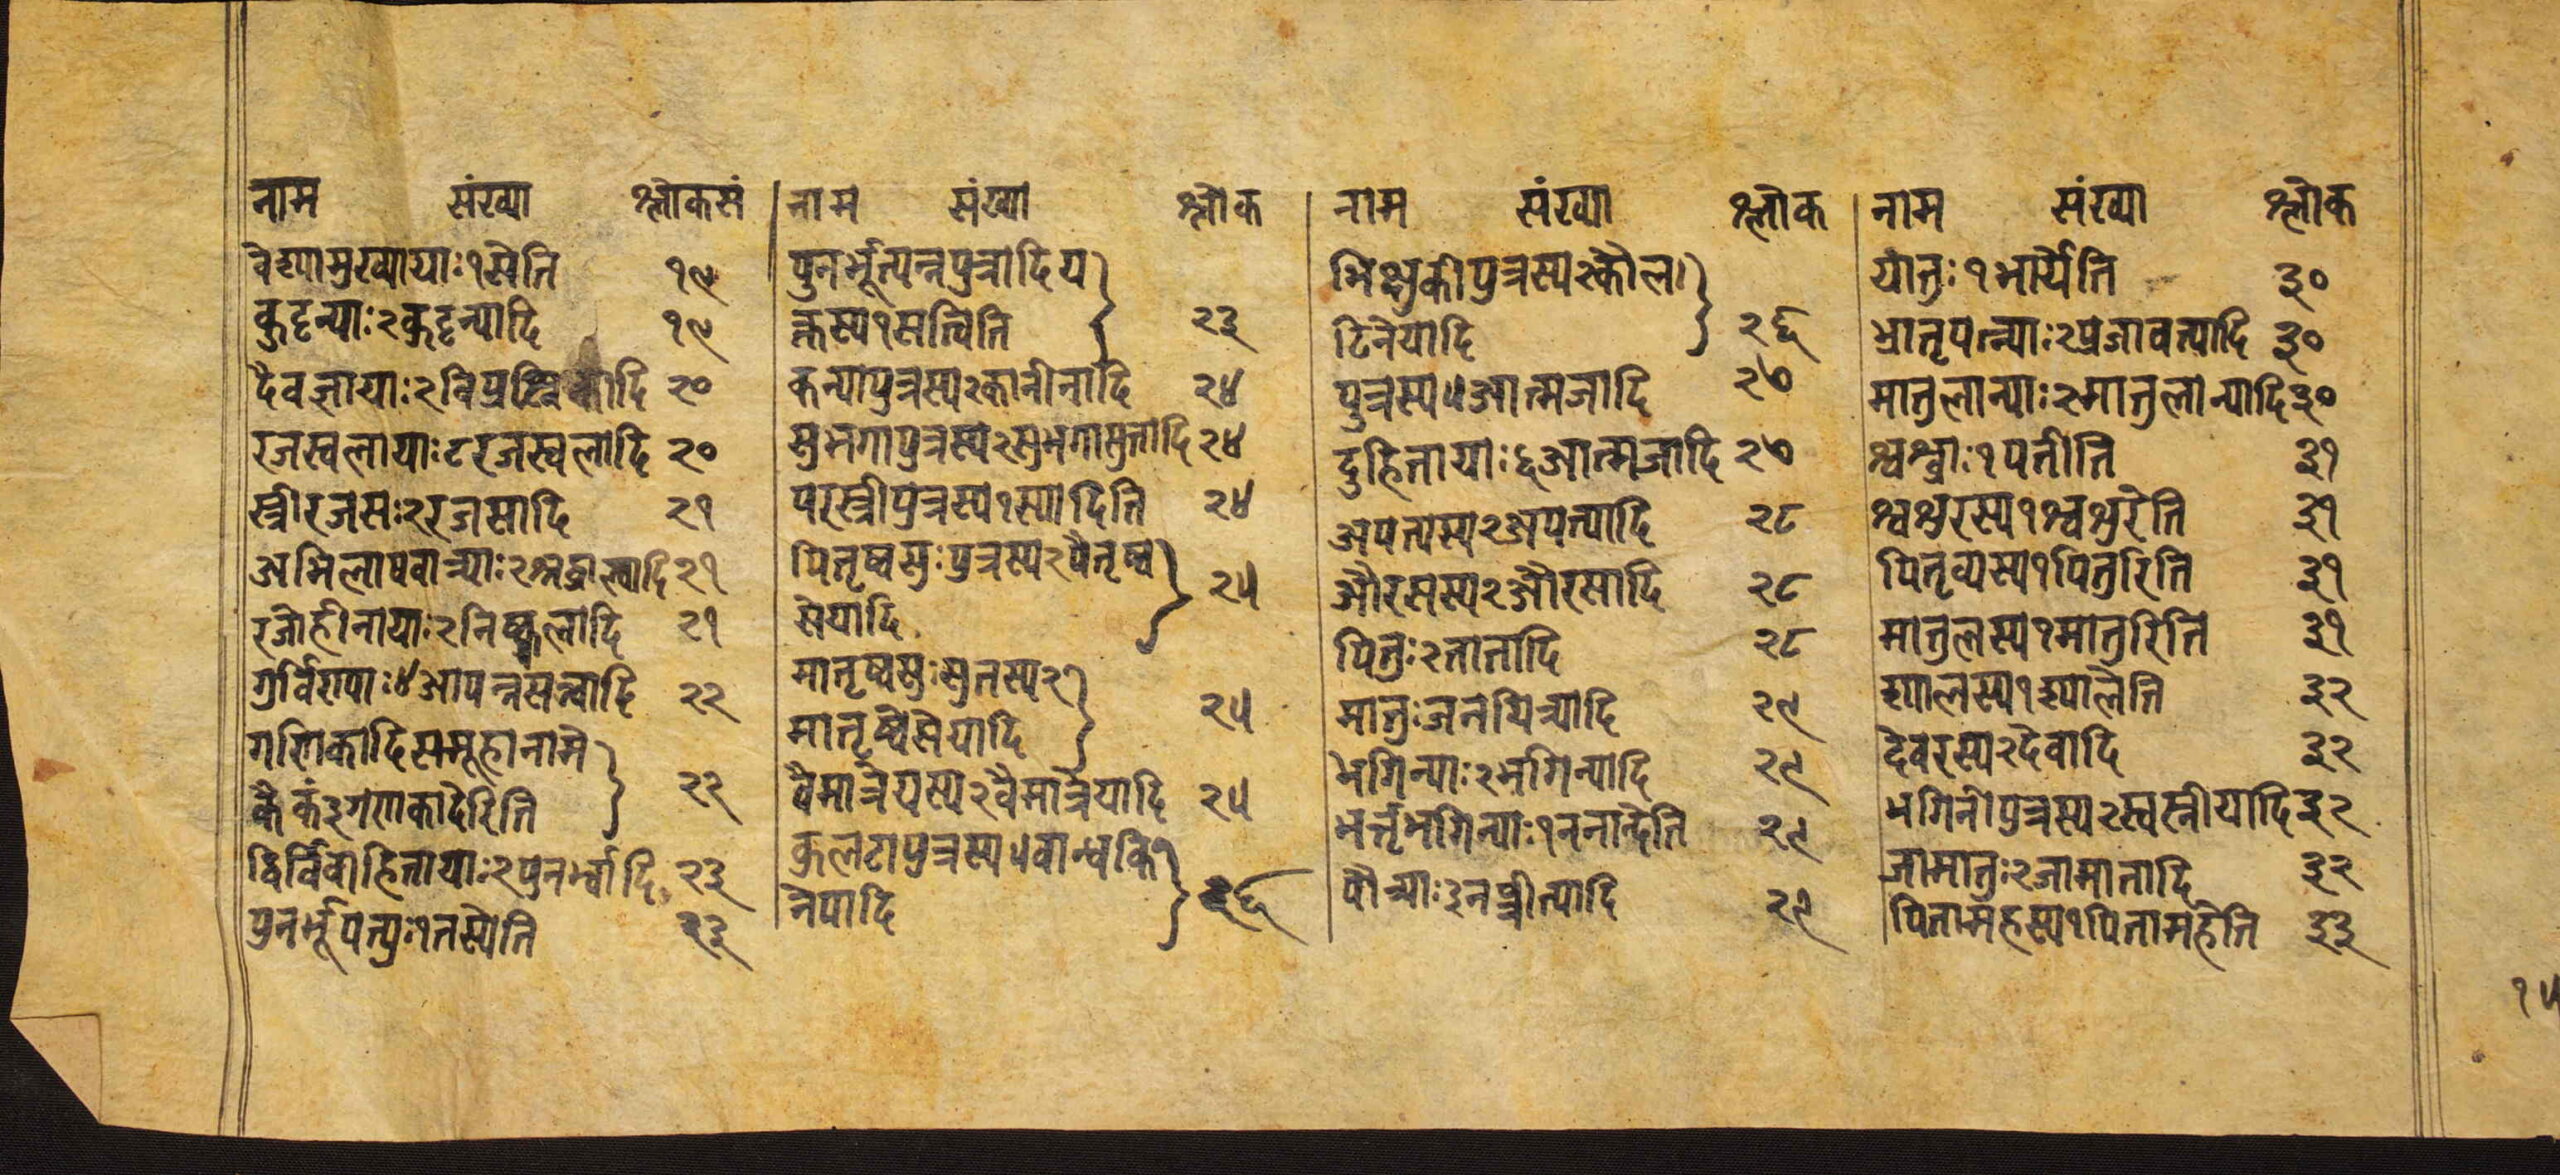 नाम संख्या श्लोकसं
वेश्यामुख्यायाः१सेति १९
कुट्टन्याः२कुट्टन्यादि १९
दैवज्ञायाः२विप्रश्निकादि २०
रजस्वलायाः८रजस्वलादि २०
स्त्रीरजसः२रजसादि २१
अभिलाषवात्र्याः२श्रद्धाल्वादि २१
रजोहीनायाः२निष्कलादि २१
गुर्विण्याः४आपन्नसत्त्वादि २२
गणिकादिसमूहानामे
कैकं३गणिकादेरिति २२
द्विर्विवाहितायाः२पुनर्भ्वादि २३
पुनर्भूपत्युः१तस्येति २३
नाम संख्या श्लोक
पुनर्भूत्पन्नपुत्रादिय
क्तस्य१सत्विति २३
कन्यापुत्रस्य२कानीनादि २४
सुभगापुत्रस्य२सुभगासुतादि २४
परस्त्रीपुत्रस्य१स्यादिति २४
पितृष्वसुःपुत्रस्य२पैतृष्व
सेयादि २५
मातृष्वसुःसुतस्य२
मातृष्वसेयादि २५
वैमात्रेयस्य२वैमात्रेयादि २५
कुलटापुत्रस्य५वान्धकि
नेयादि २६
नाम संख्या श्लोक
भिक्षुकीपुत्रस्य२कौल
टिनेयादि २६
पुत्रस्य५आत्मजादि २७
दुहितायाः६आत्मजादि २७
अपत्यस्य२अपत्यादि २८
औरसस्य२औरसादि २८
पितुः२तातादि २८
मातुःजनयित्र्यादि २९
भगिन्याः२भगिन्यादि २९
भर्तृभगिन्याः१ननान्देति २९
पौत्र्याः३नप्त्रीत्यादि २९
नाम संख्या श्लोक
यातुः१भार्येति ३०
भ्रातृपत्न्याः२प्रजावत्यादि ३०
मातुलान्याः२मातुलान्यादि ३०
श्वश्र्वाः१पतीति ३१
श्वशुरस्य१श्वशुरेति ३१
पितृव्यस्य१पितुरिति ३१
मातुलस्य१मातुरिति ३१
श्यालस्य१श्यालेति ३२
देवरस्य२देवादि ३२
भगिनीपुत्रस्य२स्वस्रीयादि ३२
जामातुः२जामातादि ३२
पितामहस्य१पितामहेति ३३
१५